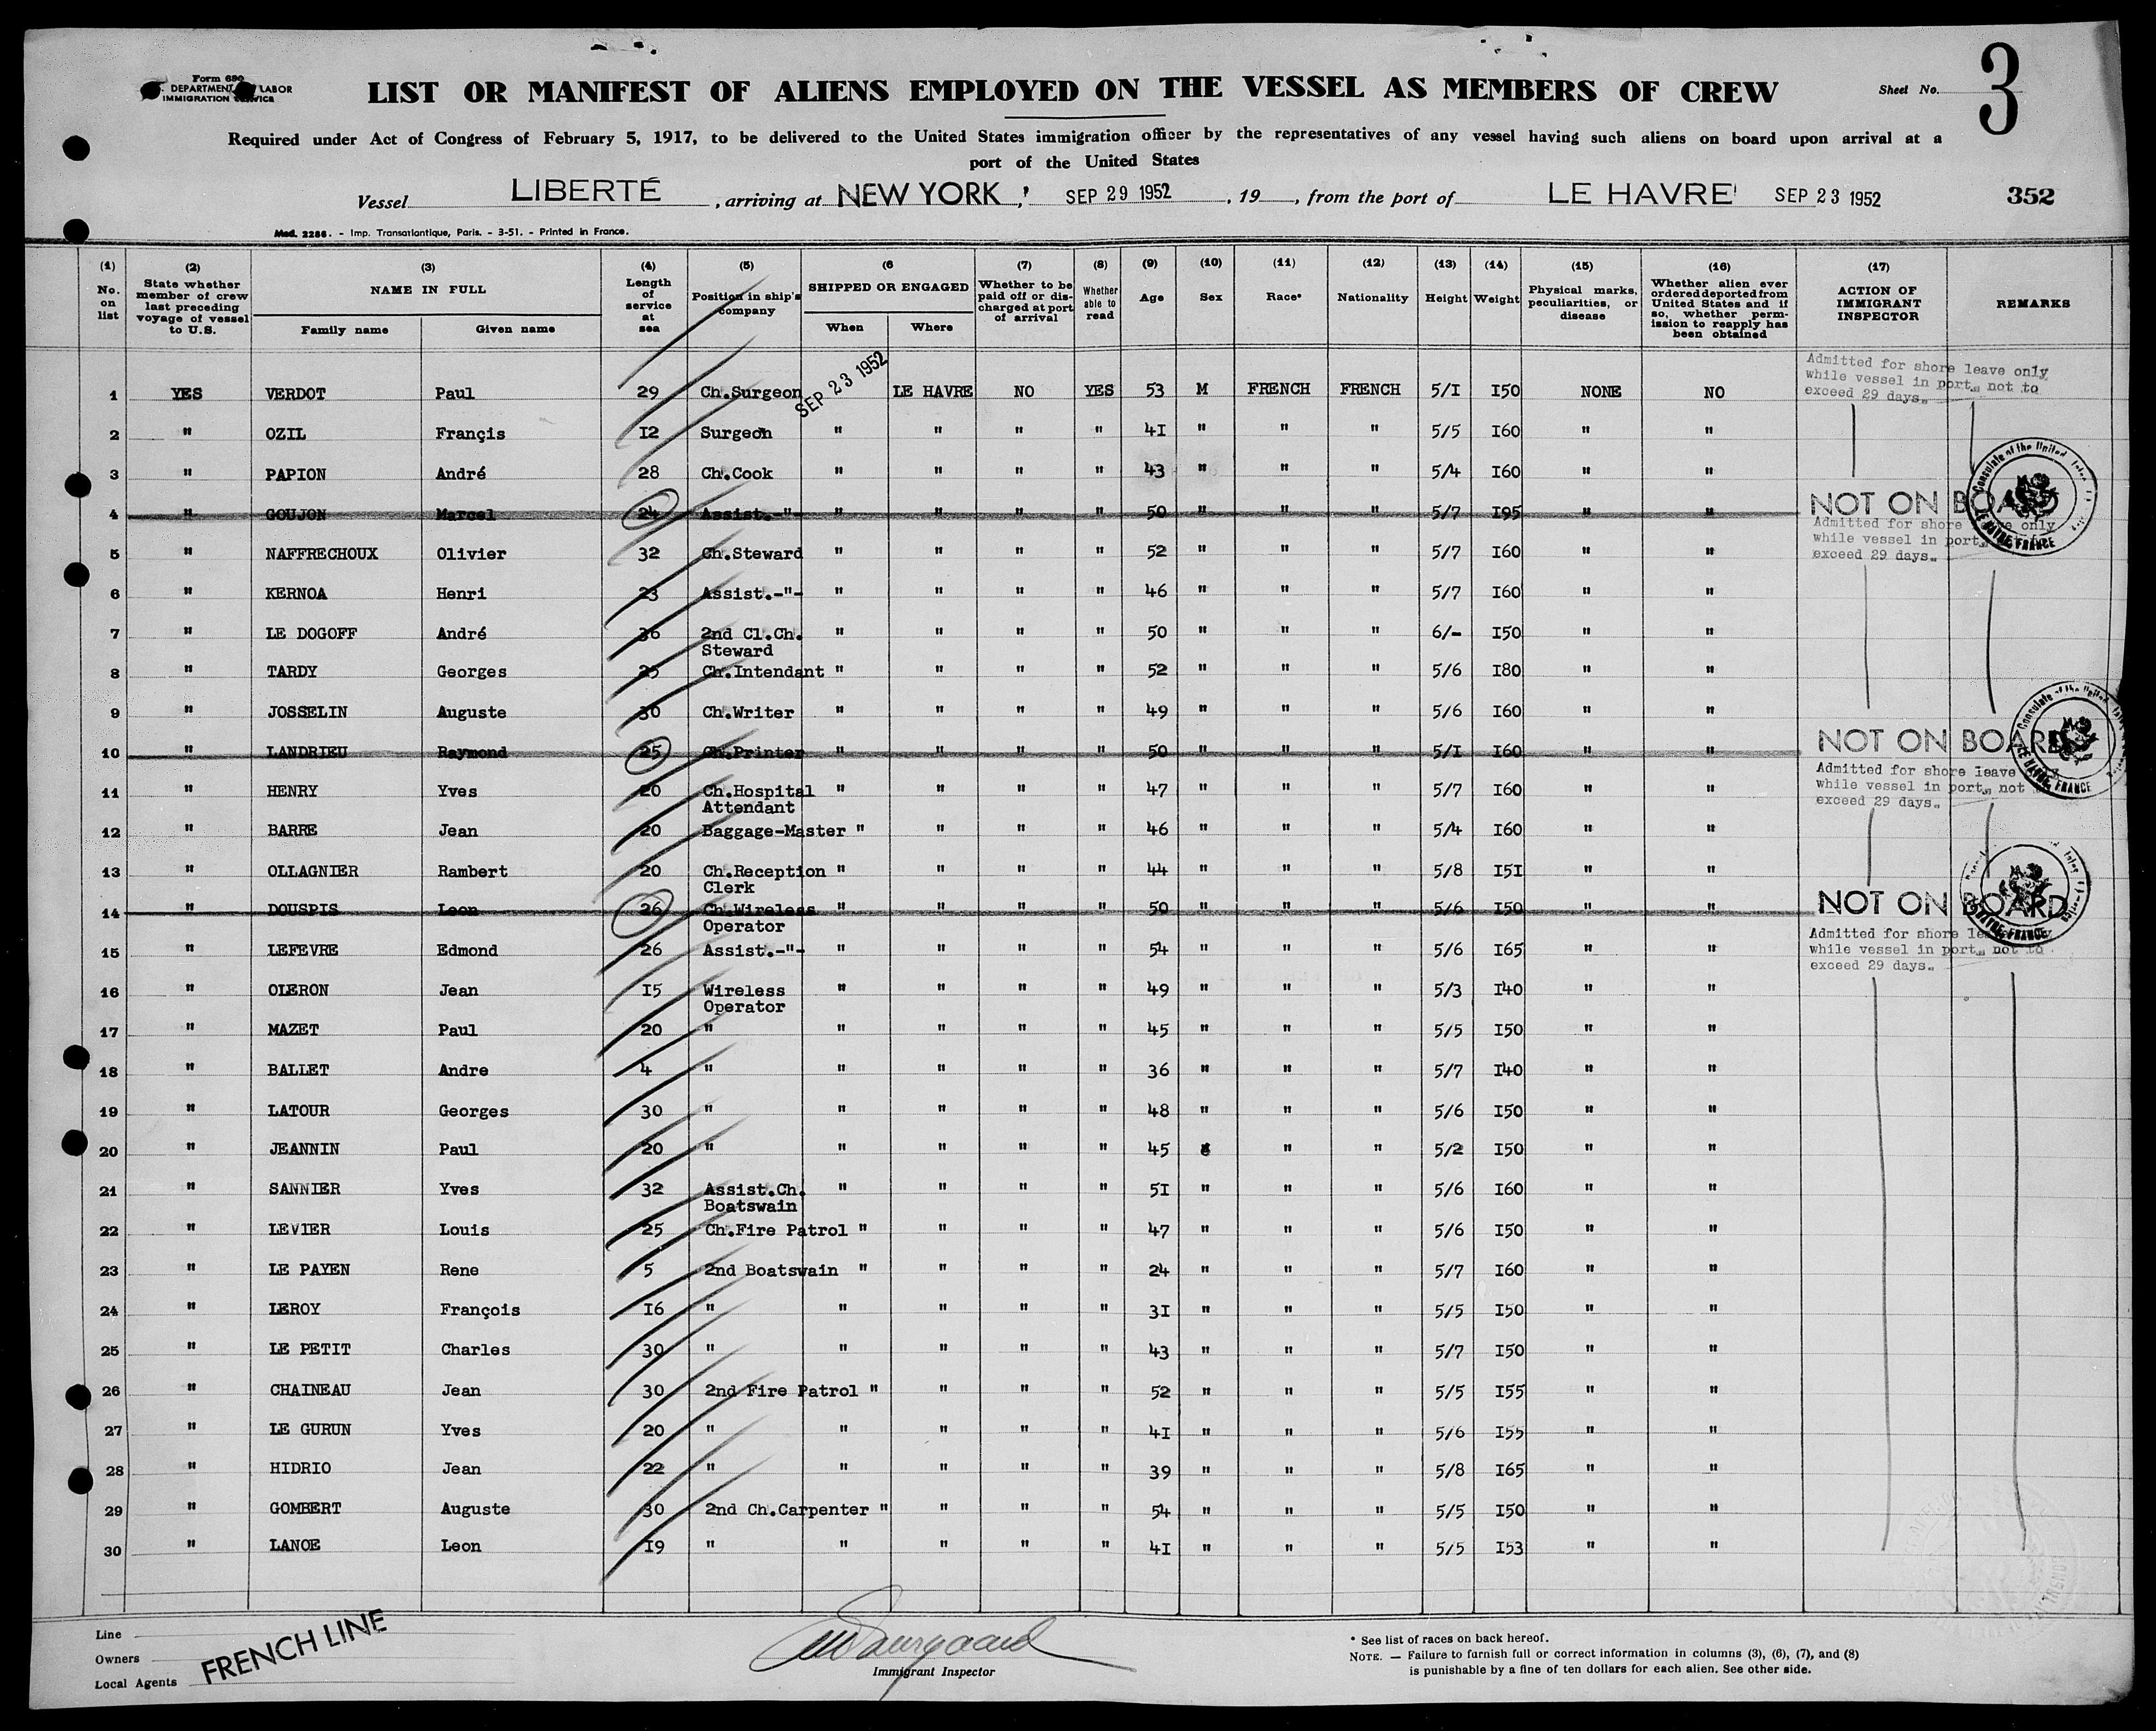 Form 680
DEPARTMENT LABOR
IMMIGRATION SERVICE
LIST OR MANIFEST OF ALIENS EMPLOYED ON THE VESSEL AS MEMBERS OF CREW
Sheet No. 3
Required under Act of Congress of February 5, 1917, to be delivered to the United States immigration officer by the representatives of any vessel having such aliens on board upon arrival at a
port of the United States
Vessel LIBERTÉ, arriving at NEW YORK, SEP 29 1952, 19, from the port of LE HAVRE SEP 23 1952 352
Mod. 2286. - Imp. Transatlantique, Paris. - 3-51. - Printed in France.
(1) No. on list (2) State whether member of crew last preceding voyage of vessel to U.S. (3) NAME IN FULL Family name Given name (4) Length of service at sea (5) Position in ship's company (6 SHIPPED OR ENGAGED When Where (7) Whether to be paid off or discharged at port of arrival (8) Whether able to read (9) Age (10) Sex (11) Race* (12) Nationality (13) Height (14) Weight (15) Physical marks, peculiarities, or disease (16) Whether alien ever ordered deported from United States and if so, whether permission to reapply has been obtained (17) ACTION OF IMMIGRANT INSPECTOR REMARKS
1 YES VERDOT Paul 29 Ch.Surgeon SEP 23 1952 LE HAVRE NO YES 53 M FRENCH FRENCH 5/I I50 NONE NO Admitted for shore leave only while vessel in port, not to exceed 29 days.
2 " OZIL Françis I2 Surgeon " " " " 4I " " " 5/5 I60 " "
3 " PAPION André 28 Ch.Cook " " " " 43 " " " 5/4 I60 " "
4 " GOUJON Marcel 24 Assist.-"- " " " " 50 " " " 5/7 I95 " " NOT ON BOARD
5 " NAFFRECHOUX Olivier 32 Ch.Steward " " " " 52 " " " 5/7 I60 " " Admitted for shore leave only while vessel in port, exceed 29 days.
6 " KERNOA Henri 23 Assist.-"- " " " " 46 " " " 5/7 I60 " "
7 " LE DOGOFF André 36 2nd Cl.Ch. Steward " " " " 50 " " " 6/- I50 " "
8 " TARDY Georges 25 Ch.Intendant " " " " 52 " " " 5/6 I80 " "
9 " JOSSELIN Auguste 30 Ch.Writer " " " " 49 " " " 5/6 I60 " "
10 " LANDRIEU Raymond 25 Ch.Printer " " " " 50 " " " 5/I I60 " " NOT ON BOARD
11 " HENRY Yves 20 Ch.Hospital Attendant " " " " 47 " " " 5/7 I60 " " Admitted for shore leave while vessel in port, not exceed 29 days.
12 " BARRE Jean 20 Baggage-Master " " " " 46 " " " 5/4 I60 " "
13 " OLLAGNIER Rambert 20 Ch.Reception Clerk " " " " 44 " " " 5/8 I5I " "
14 " DOUSPIS Leon 26 Ch.Wireless Operator " " " " 50 " " " 5/6 I50 " " NOT ON BOARD
15 " LEFEVRE Edmond 26 Assist.-"- " " " " 54 " " " 5/6 I65 " " Admitted for shore while vessel in port, not to exceed 29 days.
16 " OLERON Jean I5 Wireless Operator " " " " 49 " " " 5/3 I40 " "
17 " MAZET Paul 20 " " " " " 45 " " " 5/5 I50 " "
18 " BALLET Andre 4 " " " " " 36 " " " 5/7 I40 " "
19 " LATOUR Georges 30 " " " " " 48 " " " 5/6 I50 " "
20 " JEANNIN Paul 20 " " " " " 45 " " 5/2 I50 " "
21 " SANNIER Yves 32 Assist.Ch. Boatswain " " " " 5I " " " 5/6 I60 " "
22 " LEVIER Louis 25 Ch.Fire Patrol " " " " 47 " " " 5/6 I50 " "
23 " LE PAYEN Rene 5 2nd Boatswain " " " " 24 " " " 5/7 I60 " "
24 " LEROY François I6 " " " " " 3I " " " 5/5 I50 " "
25 " LE PETIT Charles 30 " " " " " 43 " " " 5/7 I50 " "
26 " CHAINEAU Jean 30 2nd Fire Patrol " " " " 52 " " " 5/5 I55 " "
27 " LE GURUN Yves 20 " " " " " 4I " " " 5/6 I55 " "
28 " HIDRIO Jean 22 " " " " " 39 " " " 5/8 I65 " "
29 " GOMBERT Auguste 30 2nd Ch.Carpenter " " " " 54 " " " 5/5 I50 " "
30 " LANOE Leon I9 " " " " " 4I " " " 5/5 I53 " "
Line
Owners
Local Agents
FRENCH LINE
Immigrant Inspector
* See list of races on back hereof.
NOTE. — Failure to furnish full or correct information in columns (3), (6), (7), and (8)
is punishable by a fine of ten dollars for each alien. See other side.